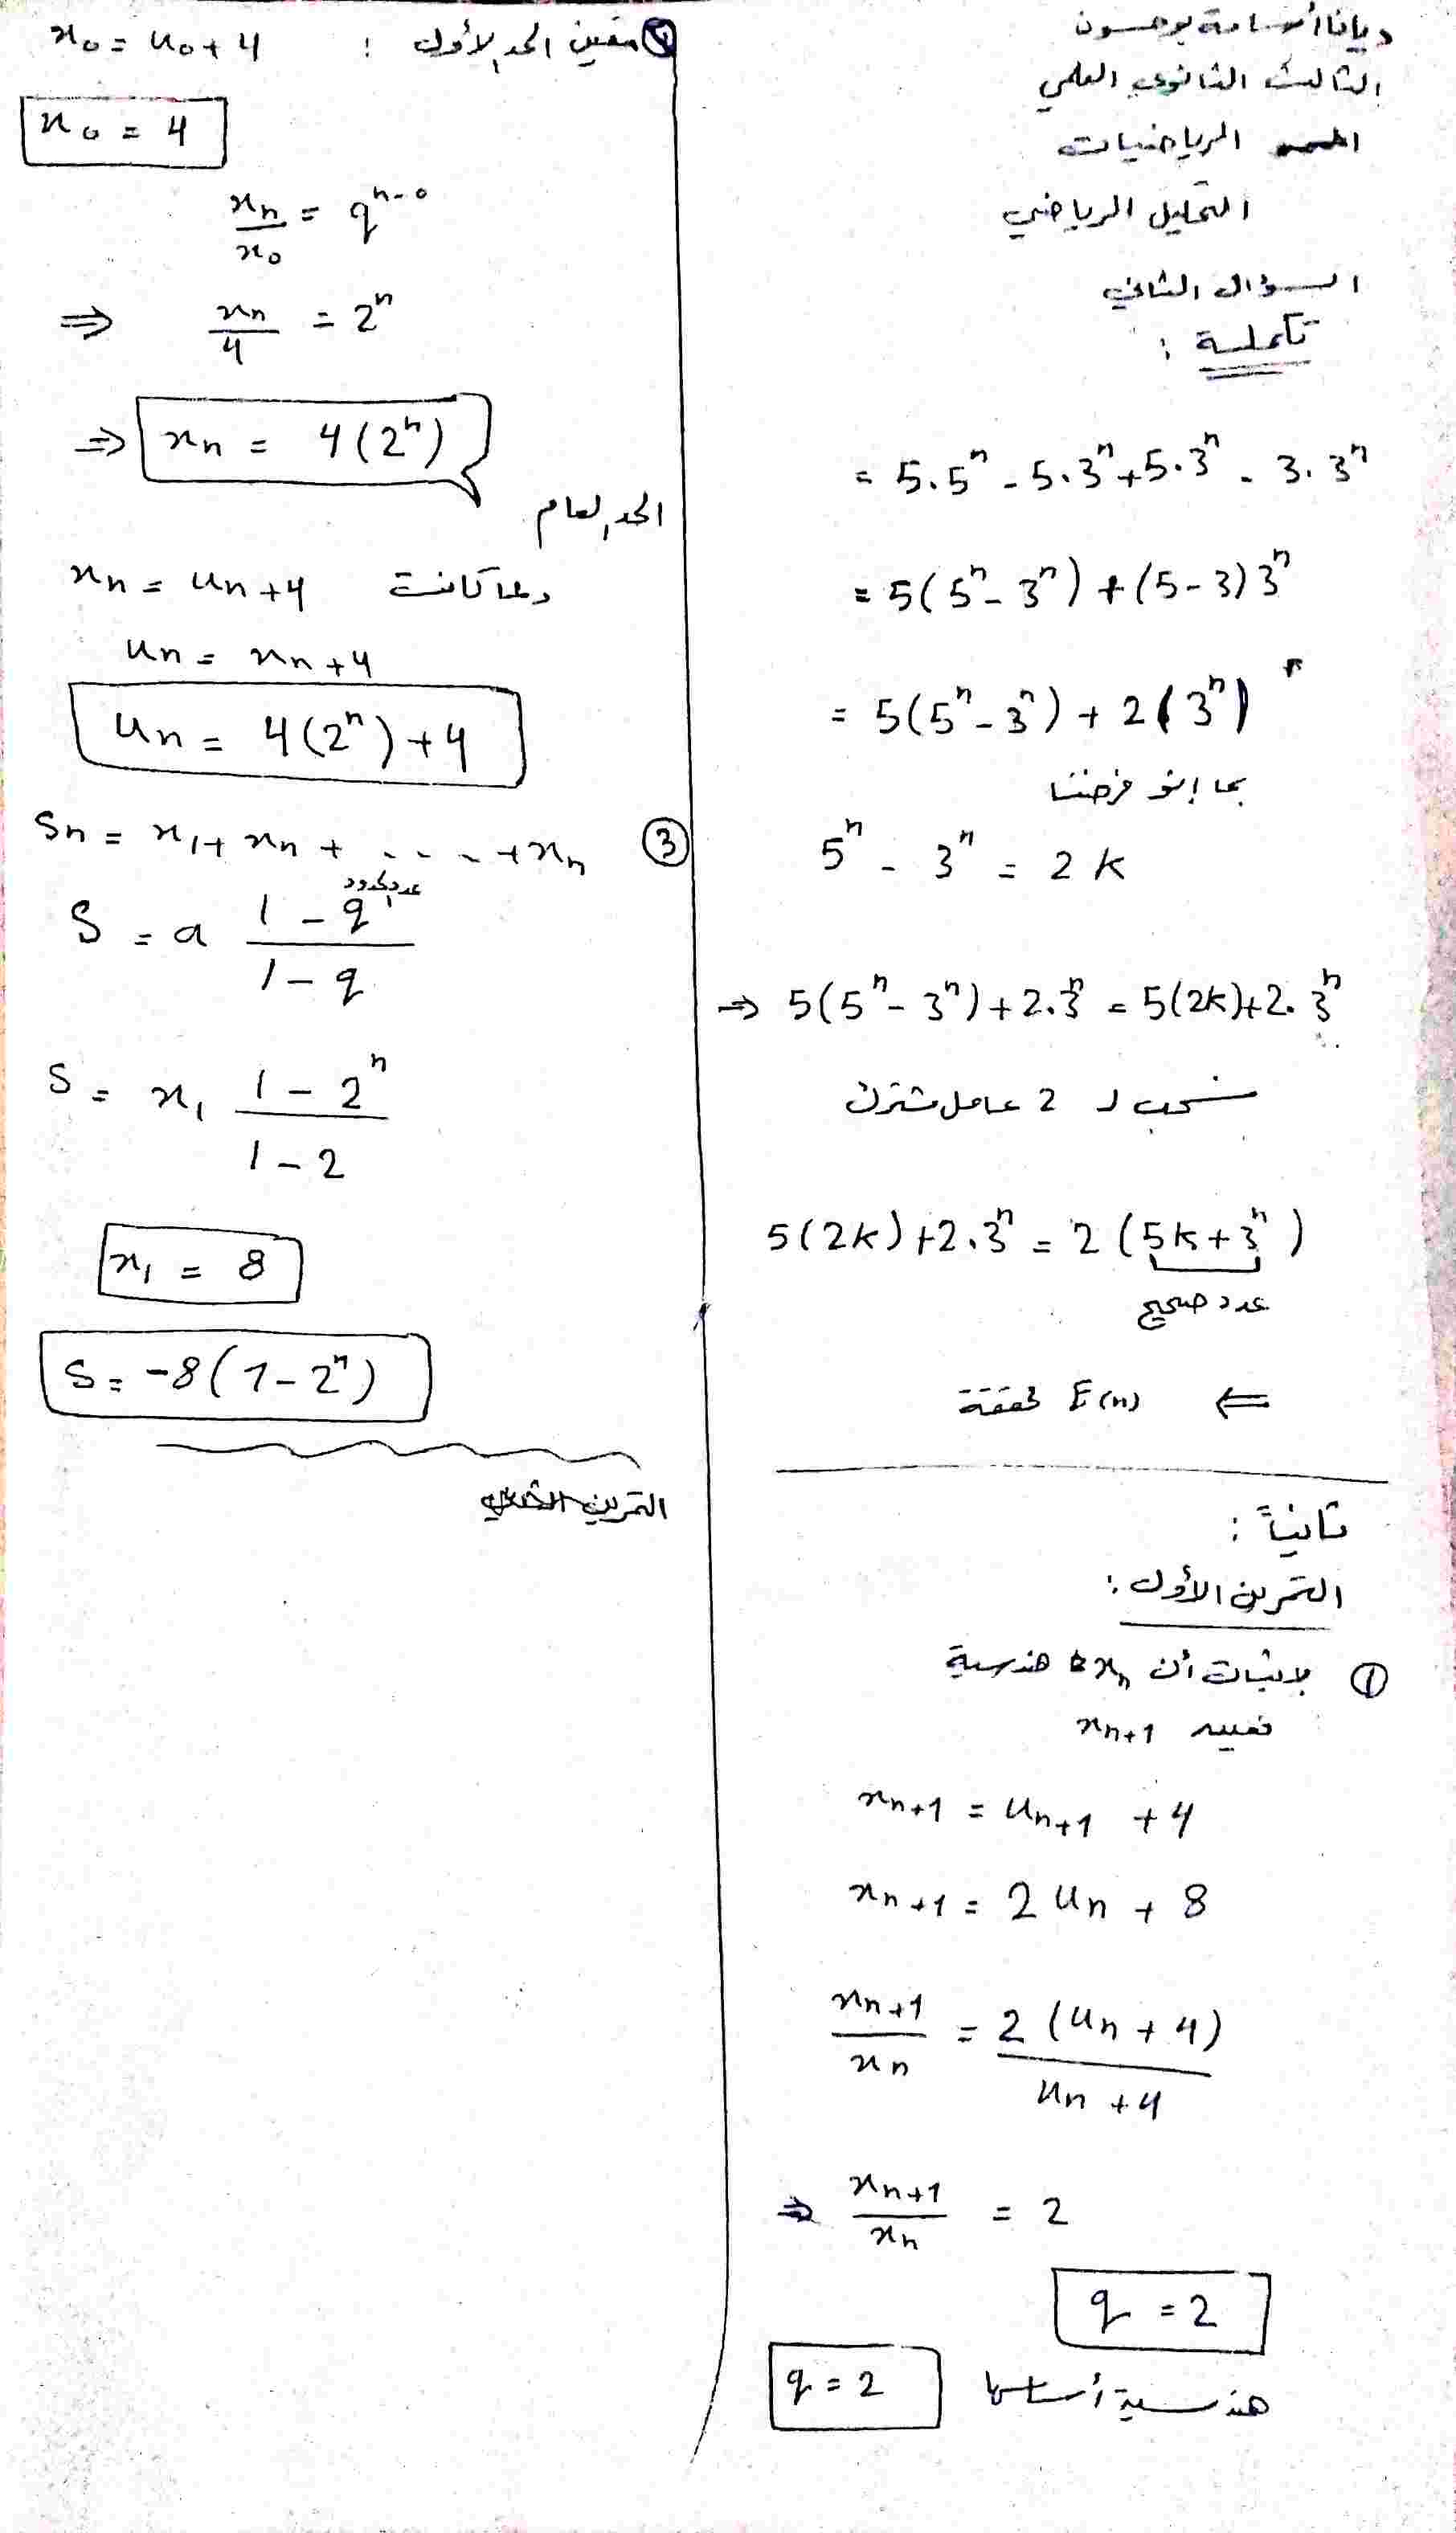 ديانا أسامة بوحسون
الثالث الثانوي العلمي
الرياضيات
التحليل الرياضي
السؤال الثاني
تكملة :
= 5.5ⁿ - 5.3ⁿ + 5.3ⁿ - 3.3ⁿ
= 5(5ⁿ - 3ⁿ) + (5-3)3ⁿ
= 5(5ⁿ - 3ⁿ) + 2(3ⁿ)
بما إنو فرضنا
5ⁿ - 3ⁿ = 2k
⇒ 5(5ⁿ - 3ⁿ) + 2.3ⁿ = 5(2k)+2.3ⁿ
نسحب ل 2 عامل مشترك
5(2k)+2.3ⁿ = 2(5k+3ⁿ)
عدد صحيح
⇐ E(n) محققة
ثانياً :
التمرين الأول :
① لإثبات أن xₙ هندسية
xₙ₊₁
xₙ₊₁ = uₙ₊₁ + 4
xₙ₊₁ = 2uₙ + 8
xₙ₊₁/xₙ = 2(uₙ + 4)/(uₙ + 4)
⇒ xₙ₊₁/xₙ = 2
q = 2
هندسية أساسها q = 2
② الحد الأول : x₀ = u₀ + 4
x₀ = 4
xₙ/x₀ = qⁿ⁻⁰
⇒ xₙ/4 = 2ⁿ
⇒ xₙ = 4(2ⁿ)
الحد العام
ولما كانت xₙ = uₙ + 4
uₙ = xₙ + 4
uₙ = 4(2ⁿ) + 4
③ Sₙ = x₁ + xₙ + .... + xₙ
عدد الحدود
S = a (1 - q)/(1 - q)
S = x₁ (1 - 2ⁿ)/(1 - 2)
x₁ = 8
S = -8(1 - 2ⁿ)
التمرين